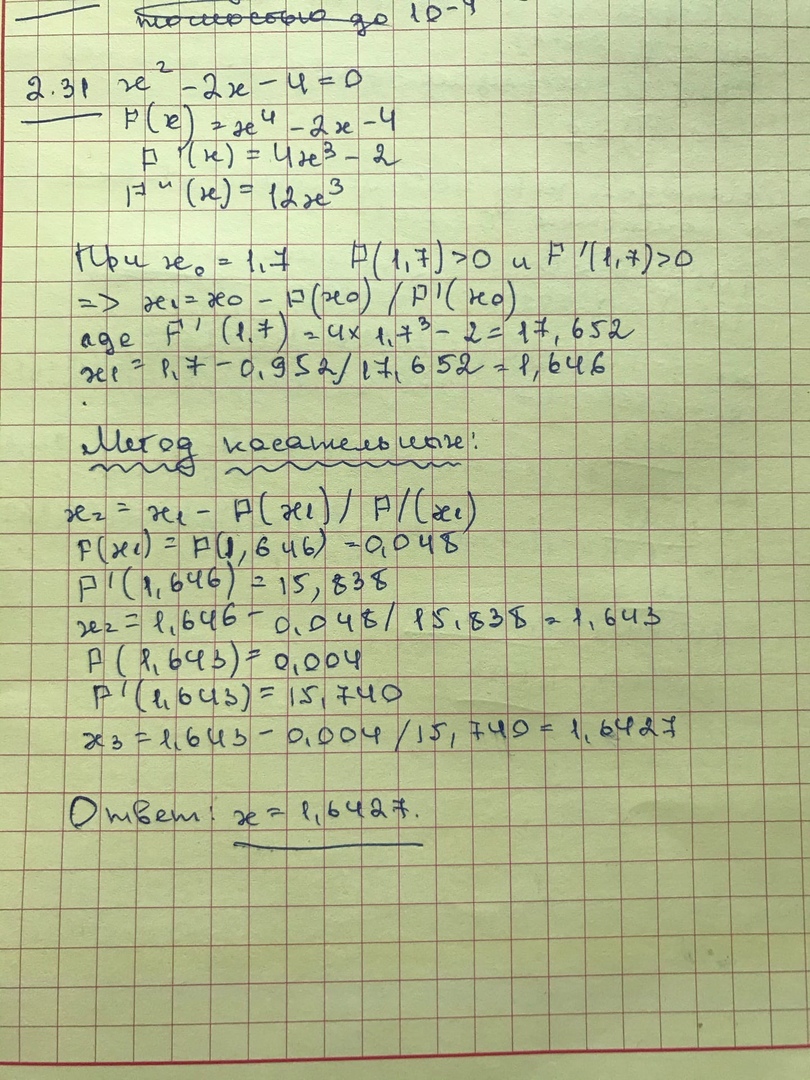 точностью до 10⁻⁴
2.31 x² - 2x - 4 = 0
F(x) = x⁴ - 2x - 4
F'(x) = 4x³ - 2
F"(x) = 12x³
При x₀ = 1,7 F(1,7) > 0 и F'(1,7) > 0
=> x₁ = x₀ - F(x₀) / F'(x₀)
где F'(1,7) = 4x 1,7³ - 2 = 17,652
x₁ = 1,7 - 0,952/17,652 = 1,646
Метод касательных:
x₂ = x₁ - F(x₁) / F/(x₁)
F(x₁) = F(1,646) = 0,048
F'(1,646) = 15,838
x₂ = 1,646 - 0,048/15,838 = 1,643
F(1,643) = 0,004
F'(1,643) = 15,740
x₃ = 1,643 - 0,004/15,740 = 1,6427
Ответ: x = 1,6427.